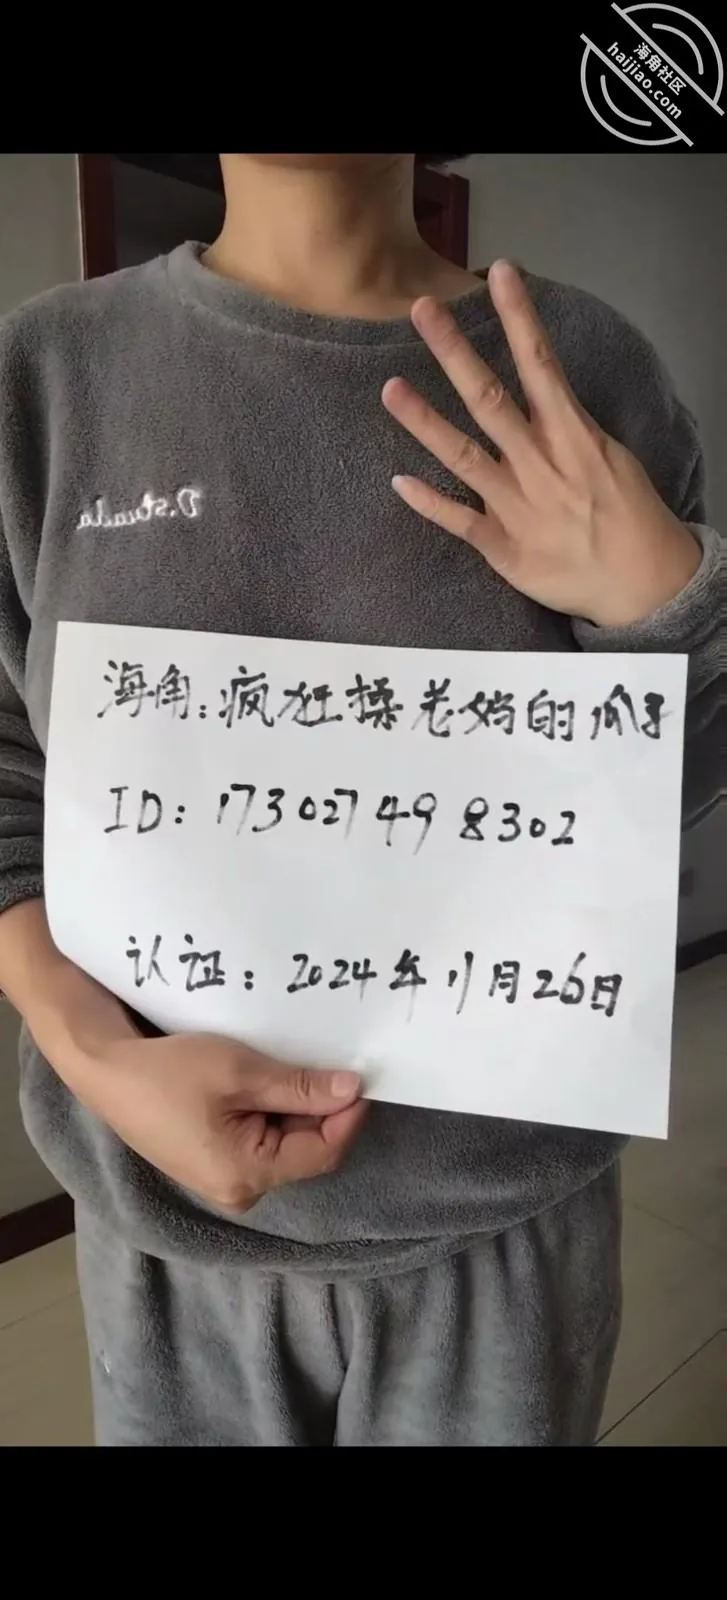 海角社区
haijiao.com
D.studda
海角：疯狂操老妈的瓜子
ID：17302749 8302
认证：2024年11月26日